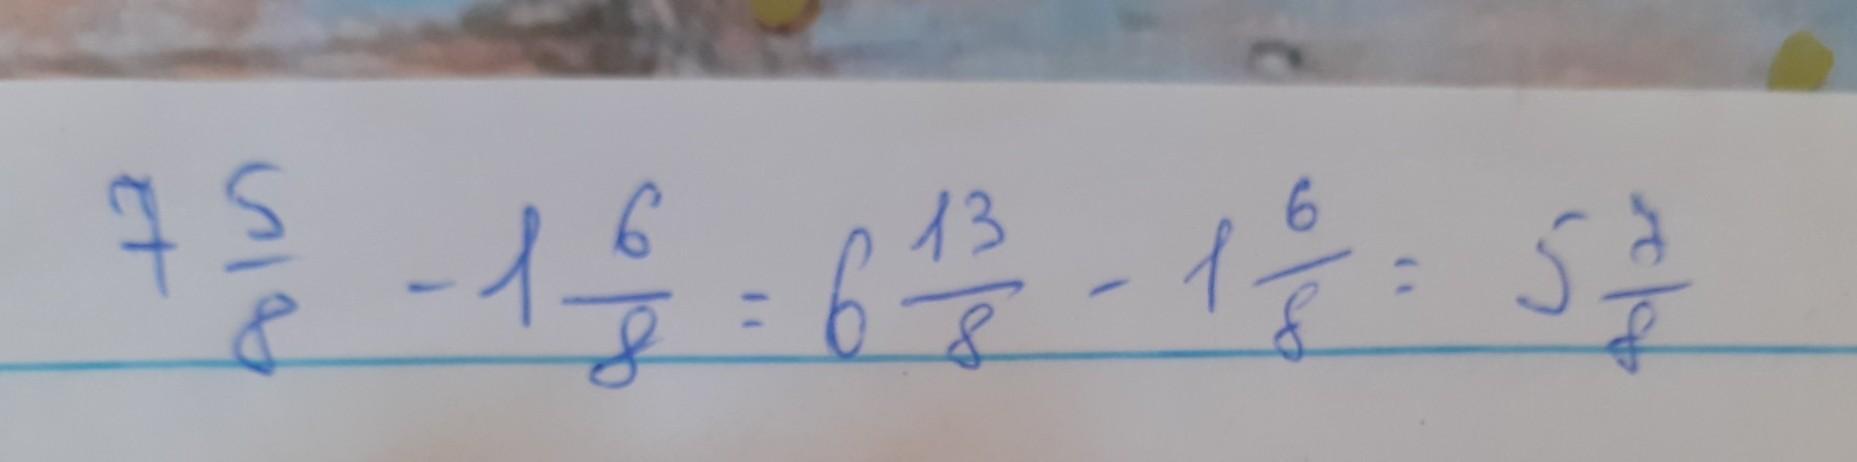 7 5/8 - 1 6/8 = 6 13/8 - 1 6/8 = 5 7/8